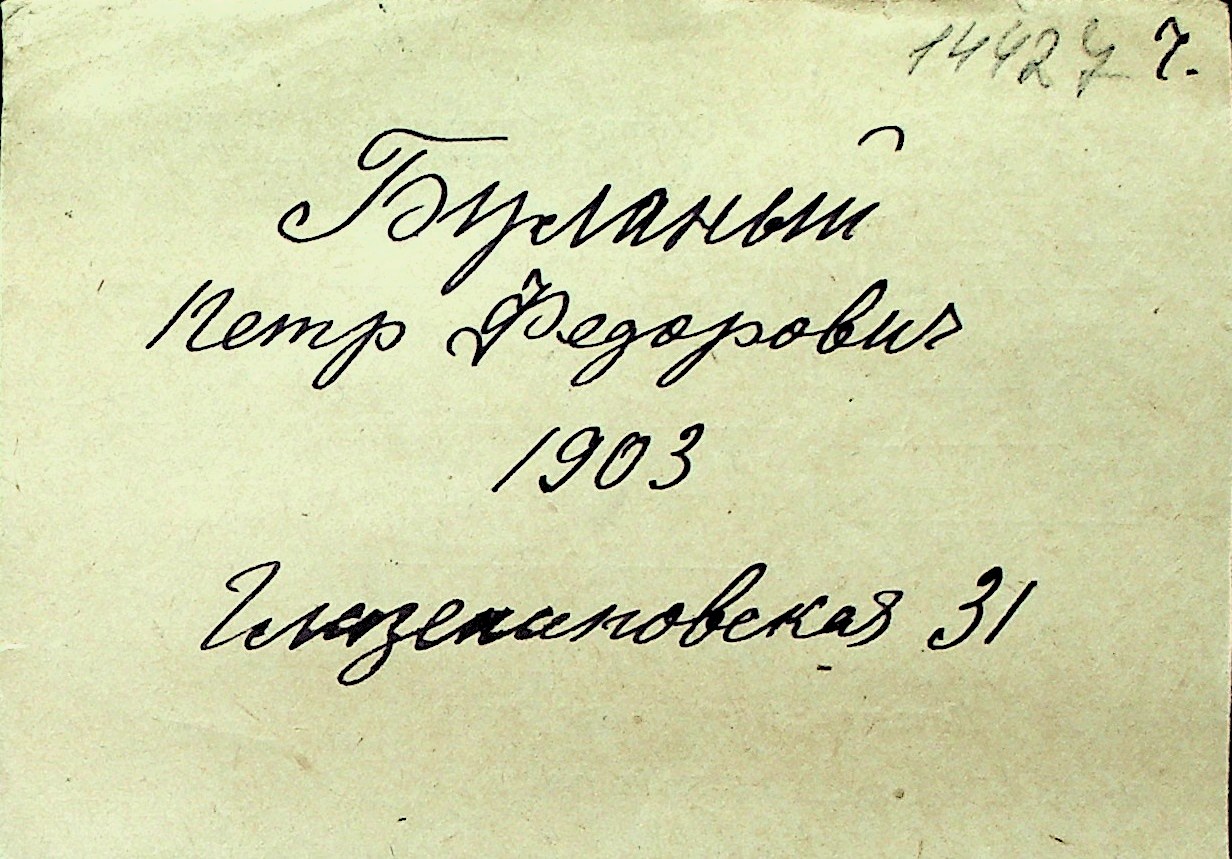 14427 7.
Буланый
Петр Федорович
1903
Глазенаповская 31